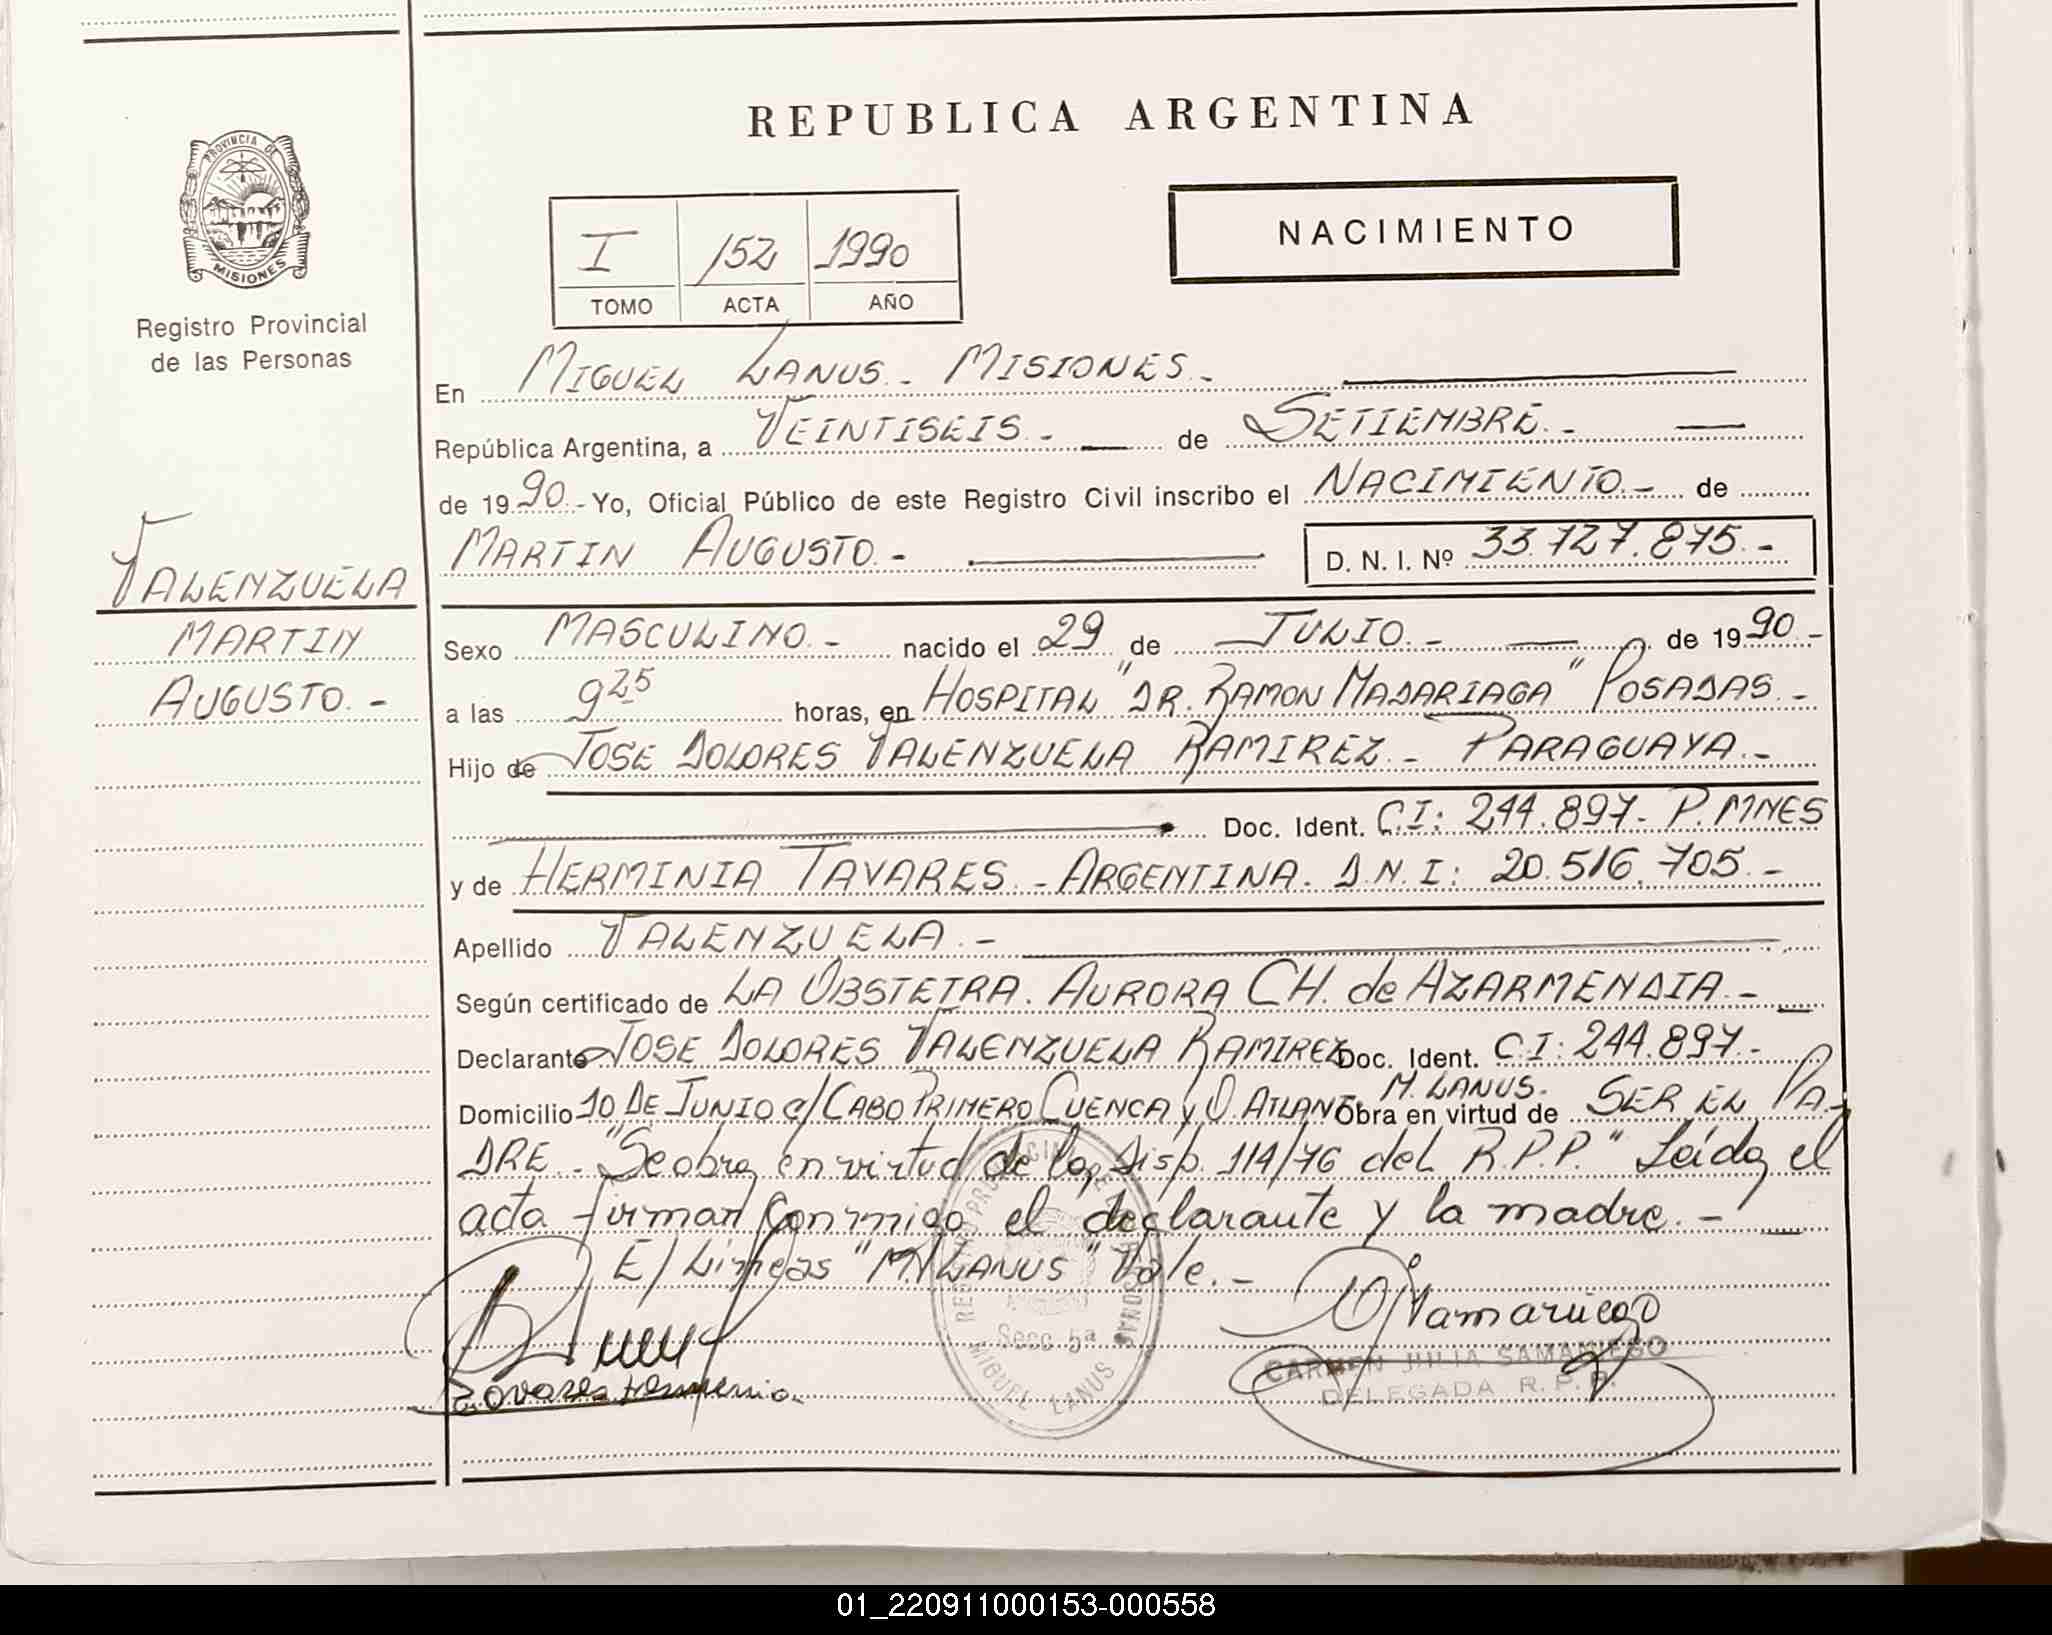 REPUBLICA ARGENTINA
PROVINCIA DE
MISIONES
Registro Provincial
de las Personas
I 152 1990
TOMO ACTA AÑO
NACIMIENTO
VALENZUELA
MARTIN
AUGUSTO.-
En MIGUEL LANUS.- MISIONES.-
República Argentina, a VEINTISEIS.- de SETIEMBRE.-
de 1990.- Yo, Oficial Público de este Registro Civil inscribo el NACIMIENTO.- de
MARTIN AUGUSTO.- D. N. I. Nº 33.727.875.-
Sexo MASCULINO.- nacido el 29 de JULIO.- de 1990.-
a las 9 25 horas, en HOSPITAL "DR. RAMON MADARIAGA" POSADAS.-
Hijo de JOSE DOLORES VALENZUELA RAMIREZ.- PARAGUAYA.-
Doc. Ident. C.I: 244.897.- P. MNES
y de HERMINIA TAVARES.- ARGENTINA. D.N.I: 20.516.705.-
Apellido VALENZUELA.-
Según certificado de LA OBSTETRA. AURORA CH. de AZARMENDIA.-
Declarante JOSE DOLORES VALENZUELA RAMIREZ Doc. Ident. C.I: 244.897.-
M. LANUS.-
Domicilio 10 DE JUNIO e/ CABO PRIMERO CUENCA y O. ATLANT. Obra en virtud de SER EL PA-
DRE.- "Se obra en virtud de la Disp. 114/76 del R.P.P." Leída el
acta firman conmigo el declarante y la madre.-
E/ Lineas "M. LANUS" Vale.-
REGISTRO PROVINCIAL DE LAS PERSONAS
Secc. 5ª
MIGUEL LANUS
Tavares Herminia
CARMEN JULIA SAMANIEGO
DELEGADA R. P. P.
01_220911000153-000558